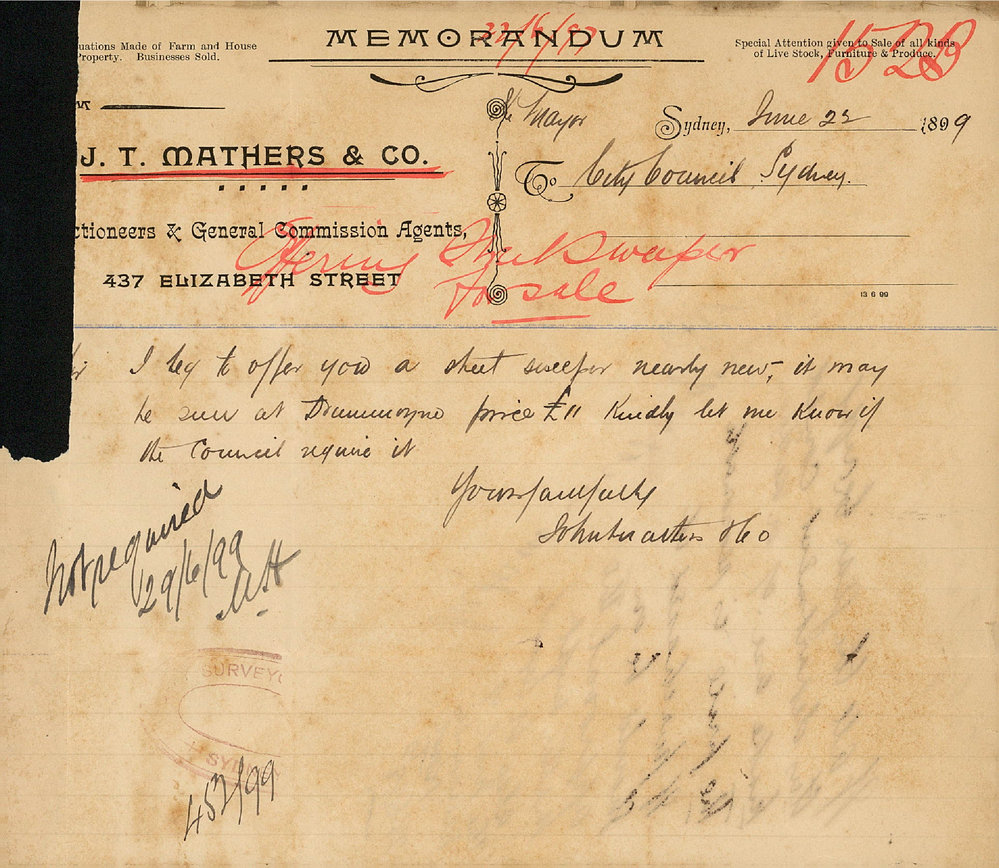 22/6/99
MEMORANDUM
1528
uations Made of Farm and House
Property. Businesses Sold.
Special Attention given to Sale of all kinds
of Live Stock, Furniture & Produce.
M
The Mayor
Sydney, June 22 1899
J. T. MATHERS & CO.
To City Council Sydney.
ctioneers & General Commission Agents,
Offering Street Sweeper
for sale
437 ELIZABETH STREET
13 6 99
Sir I beg to offer you a street sweeper nearly new, it may
be seen at Drummoyne price £11 Kindly let me know if
the Council require it
Yours faithfully
John Mathers & Co
Not required
29/6/99
SURVEYO
SYDN
452/99